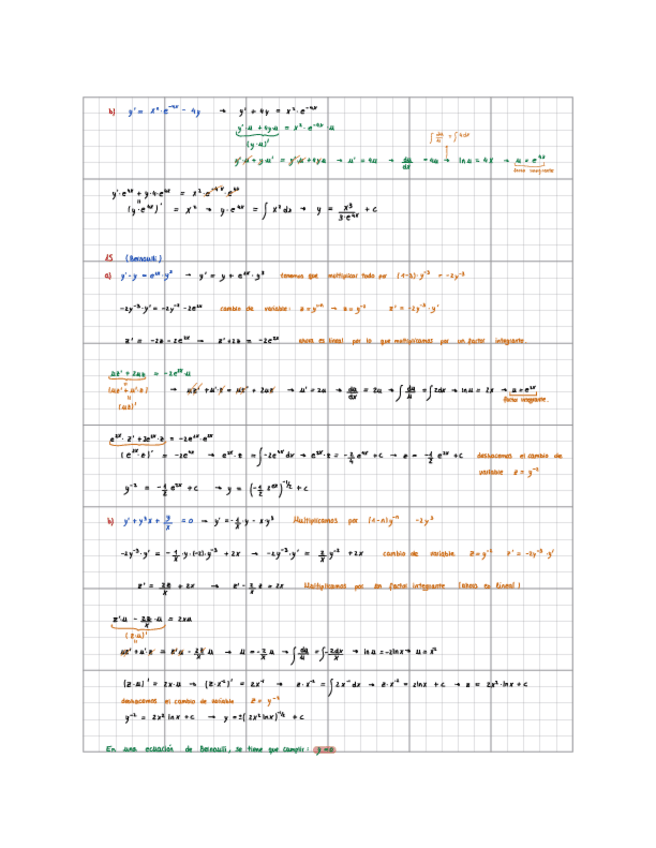 b) y' = x²·e⁻⁴ˣ - 4y → y' + 4y = x²·e⁻⁴ˣ
y'·u + 4y·u = x²·e⁻⁴ˣ·u
(y·u)'
∫ du/u = ∫ 4dx
y'·u + y·u' = y'·u + 4yu → u' = 4u → du/dx = 4u → ln u = 4x → u = e⁴ˣ
factor integrante
y'·e⁴ˣ + y·4·e⁴ˣ = x²·e⁻⁴ˣ·e⁴ˣ
(y·e⁴ˣ)' = x² → y·e⁴ˣ = ∫ x² dx → y = x³/3·e⁴ˣ + c
15 (Bernoulli)
a) y' - y = e²ˣ·y³ → y' = y + e²ˣ·y³ tenemos que multiplicar todo por (1-3)·y⁻³ = -2y⁻³
-2y⁻³·y' = -2y⁻² - 2e²ˣ cambio de variable: z = y⁻² → z = y⁻² z' = -2y⁻³·y'
z' = -2z - 2e²ˣ → z' + 2z = -2e²ˣ ahora es lineal por lo que multiplicamos por un factor integrante.
uz' + 2uz = -2e²ˣ·u
(uz' + u'·z) → uz' + u'·z = uz' + 2uz → u' = 2u → du/dx = 2u → ∫ du/u = ∫ 2dx → ln u = 2x → u = e²ˣ
(uz)' factor integrante.
e²ˣ·z' + 2e²ˣ·z = -2e²ˣ·e²ˣ
(e²ˣ·z)' = -2e⁴ˣ → e²ˣ·z = ∫ -2e⁴ˣ dx → e²ˣ·z = -2/4 e⁴ˣ + c → z = -1/2 e²ˣ + c deshacemos el cambio de
variable z = y⁻²
y⁻² = -1/2 e²ˣ + c → y = (-1/2 e²ˣ)⁻¹/² + c
b) y' + y³x + y/x = 0 → y' = -1/x·y - x·y³ Multiplicamos por (1-n)y⁻ⁿ -2y³
-2y⁻³·y' = -1/x·y·(-2)·y⁻³ + 2x → -2y⁻³·y' = 2/x y⁻² + 2x cambio de variable z = y⁻² z' = -2y⁻³·y'
z' = 2z/x + 2x → z' - 2/x z = 2x Multiplicamos por un factor integrante (ahora es lineal)
z'·u - 2z/x·u = 2xu
(z·u)'
uz' + u'·z = z'·u - 2z/x u → u = -2/x u → ∫ du/u = ∫ -2dx/x → ln u = -2ln x → u = x²
(z·u)' = 2x·u → (z·x⁻²)' = 2x⁻¹ → z·x⁻² = ∫ 2x⁻¹ dx → z·x⁻² = 2ln x + c → z = 2x²·ln x + c
deshacemos el cambio de variable z = y⁻²
y⁻² = 2x² ln x + c → y = ±(2x² ln x)⁻¹/² + c
En una ecuación de Bernoulli, se tiene que cumplir: